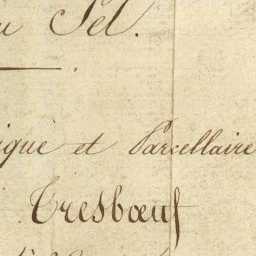 u Sel.
ique et Parcellaire
Tresbœuf